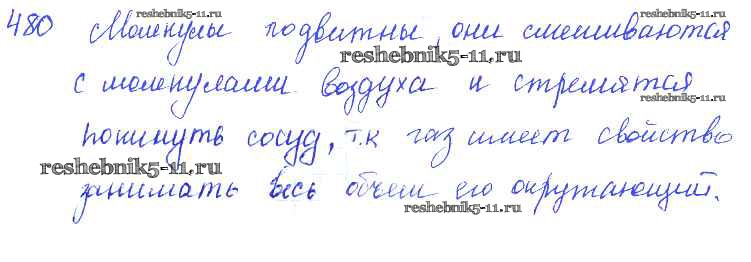 reshebnik5-11.ru reshebnik5-11.ru
480 Молекулы подвижны, они смешиваются
reshebnik5-11.ru
с молекулами воздуха и стремятся
reshebnik5-11.ru
покинуть сосуд, т.к газ имеет свойство
reshebnik5-11.ru reshebnik5-11.ru
занимать весь объем его окружающий.
reshebnik5-11.ru